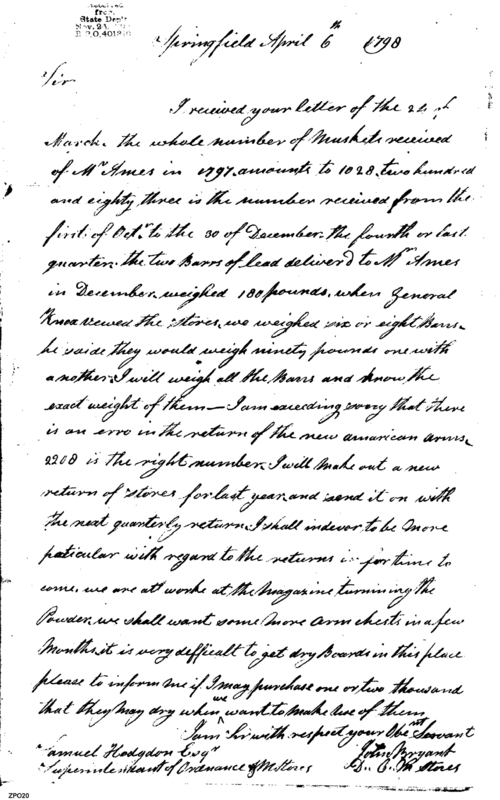 Received
from
State Dep't
Nov. 24
Springfield April 6th 1798
Sir
I received your letter of the 22d of
March. the whole number of Muskets received
of Mr Ames in 1797. amounts to 1028. two hundred
and eighty three is the number received from the
first. of Octr. to the 30 of December. the fourth or last
quarter. the two Barrs of lead deliverd to Mr Ames
in December weighed 180 pounds. when General
Knox viewed the stores, we weighed six or eight Barrs.
he saide they would weigh ninety pounds one with
another. I will weigh all the Barrs and know the
exact weight of them — I am exceeding sorry that there
is an erro in the return of the new amarican arms.
2208 is the right number. I will make out a new
return of stores for last year. and send it on with
the next quarterly return. I shall indevor to be more
paticular with regard to the returns for time to
come. we are att worke at the Magazine turnning the
Powder. we shall want some more arm chests in a few
Months. it is very defficult to get dry Boards in this place
please to inform me if I may purchase one or two thousand
that they may dry when we want to make use of them
I am Sir with respect your Obe nt Servant
John Bryant
Samuel Hodgdon Esqr
Superintendant of Ordnance & M Stores
D. C. M Stores
ZPO20